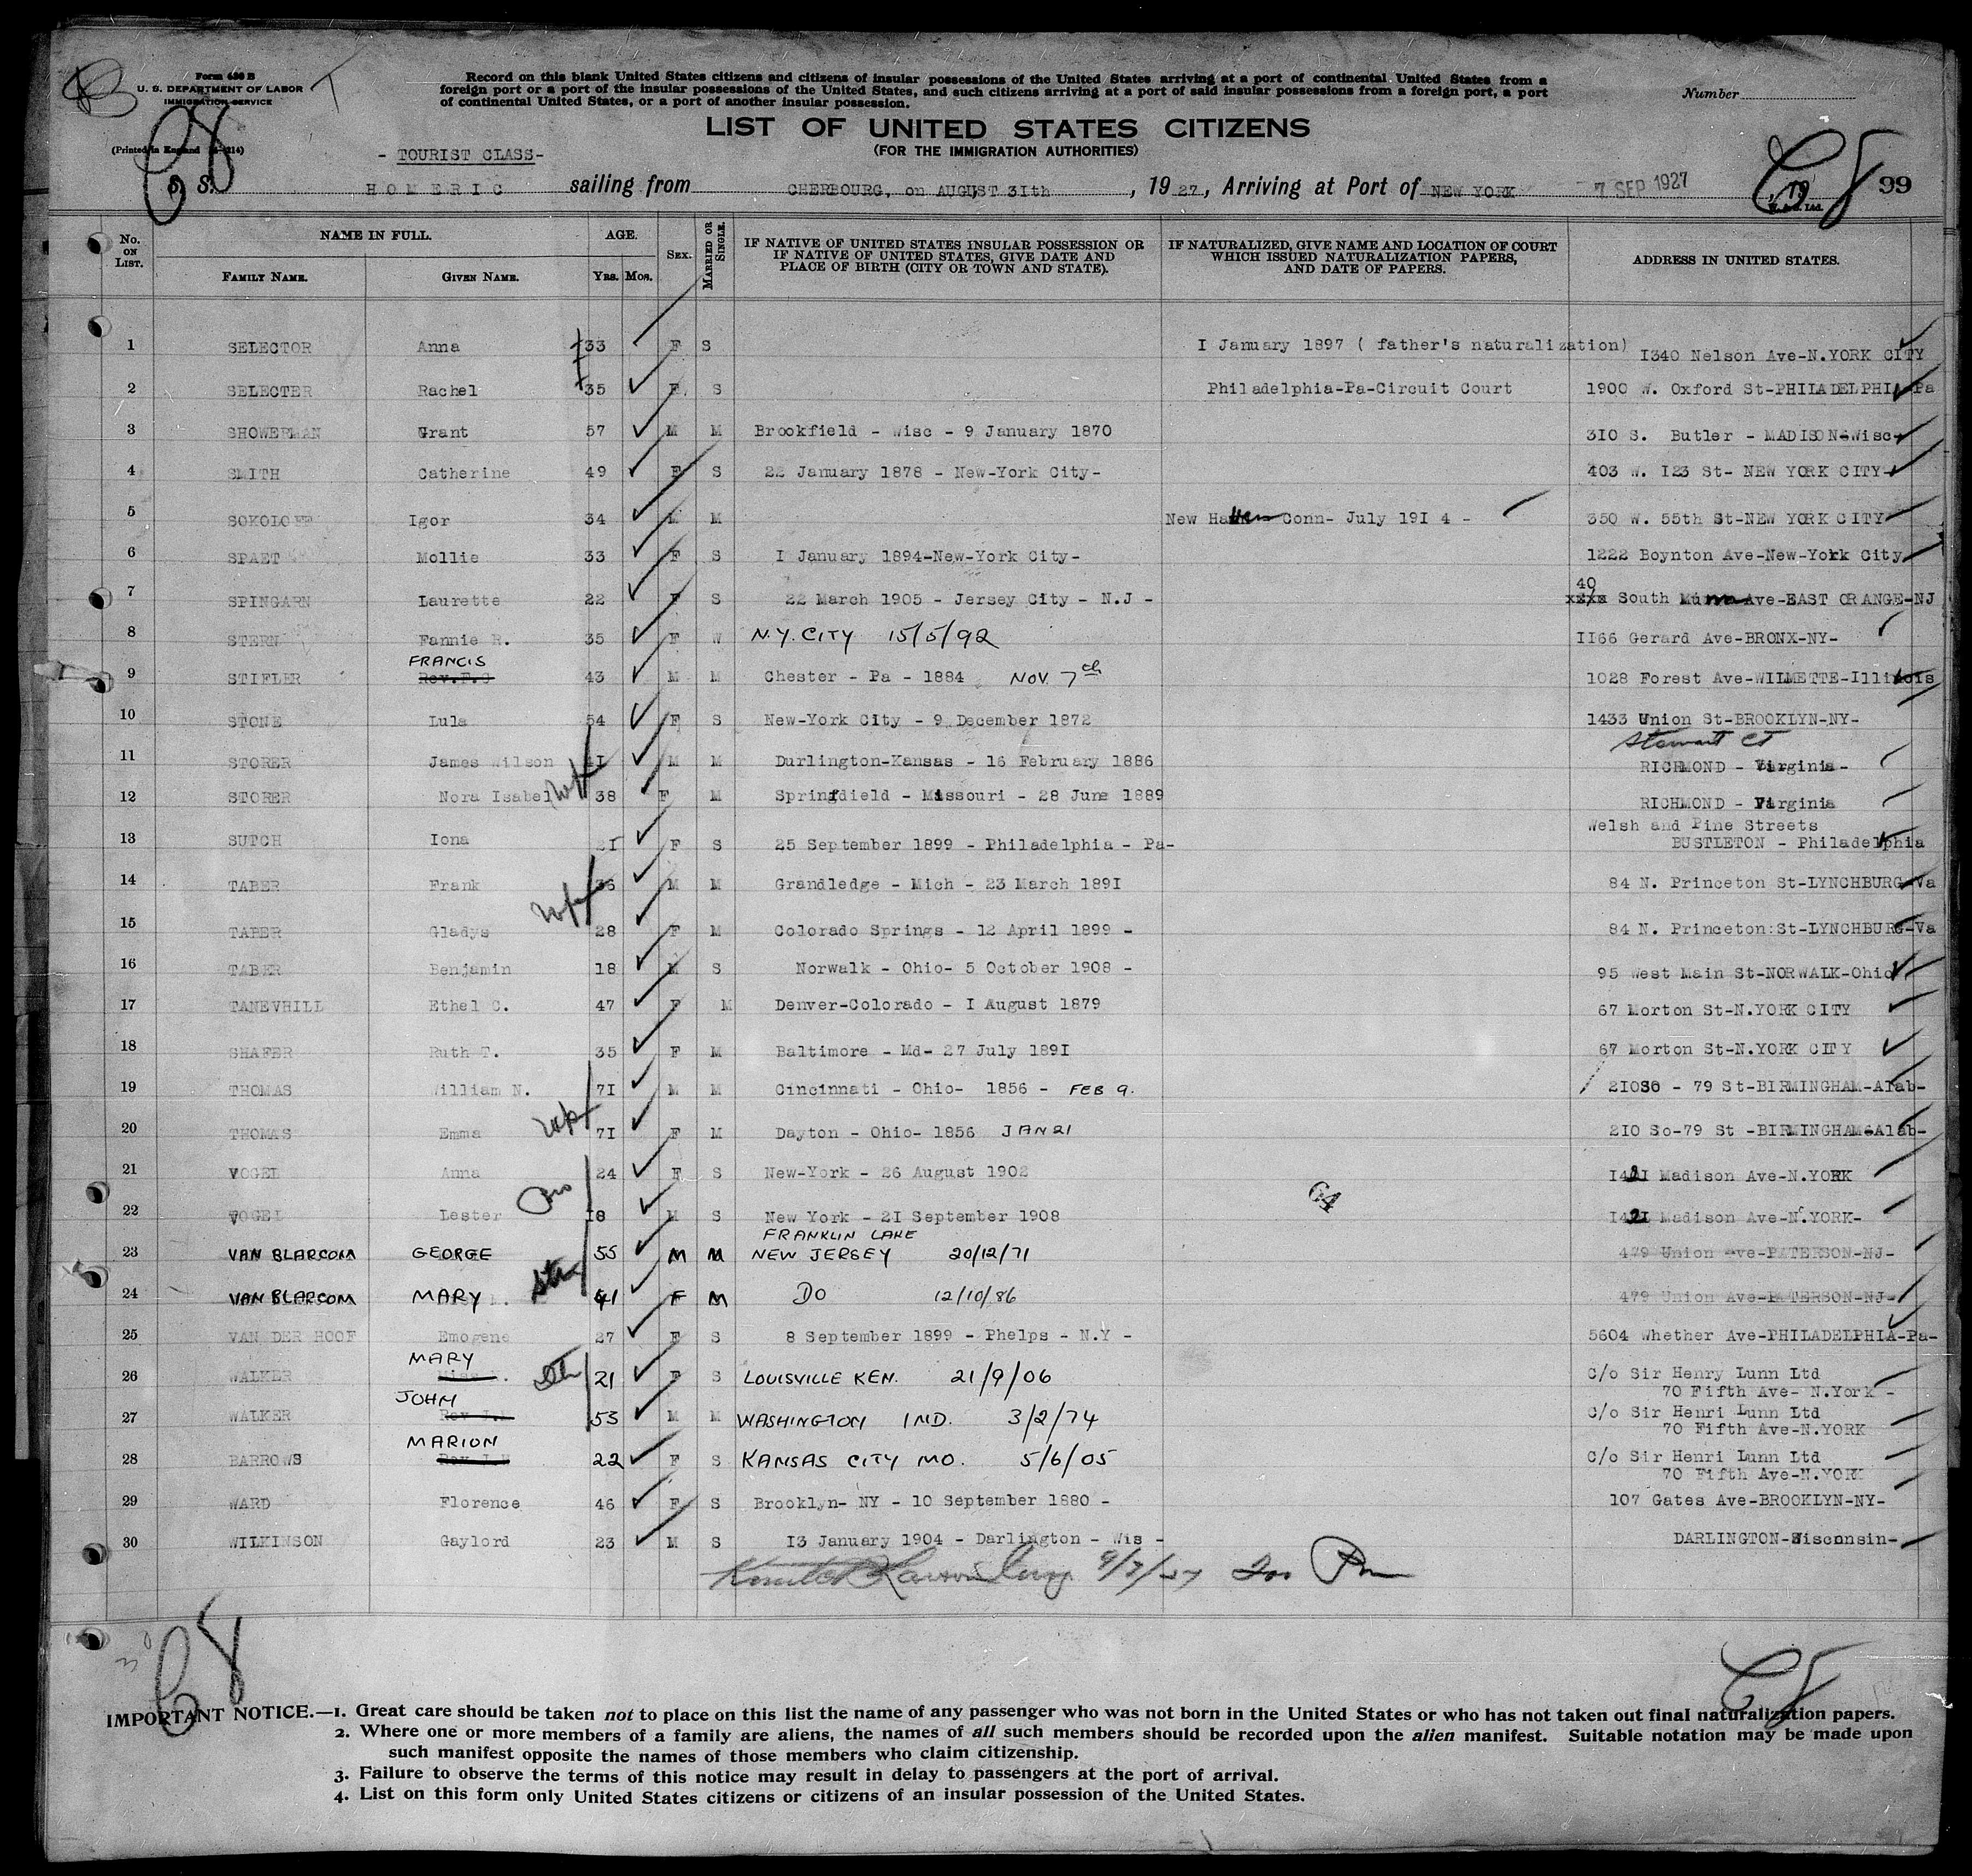 Form 630 B
U. S. DEPARTMENT OF LABOR
IMMIGRATION SERVICE
(Printed in England
Record on this blank United States citizens and citizens of insular possessions of the United States arriving at a port of continental United States from a
foreign port or a port of the insular possessions of the United States, and such citizens arriving at a port of said insular possessions from a foreign port, a port
of continental United States, or a port of another insular possession.
Number
LIST OF UNITED STATES CITIZENS
(FOR THE IMMIGRATION AUTHORITIES)
- TOURIST CLASS-
S. S. HOMERIC sailing from CHERBOURG, on AUGUST 3Ith , 1927, Arriving at Port of NEW YORK 7 SEP 1927 , 19 99
No. ON LIST. NAME IN FULL. AGE. SEX. MARRIED OR SINGLE. IF NATIVE OF UNITED STATES INSULAR POSSESSION OR IF NATIVE OF UNITED STATES, GIVE DATE AND PLACE OF BIRTH (CITY OR TOWN AND STATE). IF NATURALIZED, GIVE NAME AND LOCATION OF COURT WHICH ISSUED NATURALIZATION PAPERS, AND DATE OF PAPERS. ADDRESS IN UNITED STATES.
FAMILY NAME. GIVEN NAME. YRS. MOS.
1 SELECTOR Anna 33 F S I January 1897 ( father's naturalization) I340 Nelson Ave-N.YORK CITY
2 SELECTER Rachel 35 F S Philadelphia-Pa-Circuit Court 1900 W. Oxford St-PHILADELPHIA-Pa
3 SHOWERMAN Grant 57 M M Brookfield - Wisc - 9 January 1870 3I0 S. Butler - MADISON-Wisc-
4 SMITH Catherine 49 F S 22 January 1878 - New-York City- 403 W. I23 St- NEW YORK CITY-
5 SOKOLOFF Igor 34 M M New Haven Conn- July 19I 4 - 350 W. 55th St-NEW YORK CITY-
6 SPAET Mollie 33 F S I January 1894-New-York City- 1222 Boynton Ave-New-York City
7 SPINGARN Laurette 22 F S 22 March 1905 - Jersey City - N.J - 40 xxxx South Ave-EAST ORANGE-NJ
8 STERN Fannie R. 35 F W N.Y. CITY 15/5/92 II66 Gerard Ave-BRONX-NY-
FRANCIS
9 STIFLER Rev.F.C 43 M M Chester - Pa - 1884 NOV. 7th 1028 Forest Ave-WILMETTE-Illinois
10 STONE Lula 54 F S New-York City - 9 December 1872 1433 Union St-BROOKLYN-NY-
Stewart Ct
11 STORER James Wilson 4I M M Durlington-Kansas - 16 February 1886 RICHMOND - Virginia-
12 STORER Nora Isabel 38 F M Springfdield - Missouri - 28 June 1889 RICHMOND - Virginia
Welsh and Pine Streets
13 SUTCH Iona 2I F S 25 September 1899 - Philadelphia - Pa- BUSTLETON - Philadelphia
14 TABER Frank 36 M M Grandledge - Mich - 23 March 189I 84 N. Princeton St-LYNCHBURG-Va
15 TABER Gladys 28 F M Colorado Springs - 12 April 1899 - 84 N. Princeton:St-LYNCHBURG-Va
16 TABER Benjamin 18 M S Norwalk - Ohio- 5 October 1908 - 95 West Main St-NORWALK-Ohio
17 TANEVHILL Ethel C. 47 F M Denver-Colorado - I August 1879 67 Morton St-N.YORK CITY
18 SHAFER Ruth T. 35 F M Baltimore - Md- 27 July 189I 67 Morton St-N.YORK CITY
19 THOMAS William N. 7I M M Cincinnati - Ohio- 1856 - FEB 9. 210So - 79 St-BIRMINGHAM-Alab-
20 THOMAS Emma 7I F M Dayton - Ohio- 1856 JAN 21 2I0 So-79 St -BIRMINGHAM-Alab-
21 VOGEL Anna 24 F S New-York - 26 August 1902 I421 Madison Ave-N.YORK
22 VOGEL Lester I8 M S New York - 2I September 1908 I421 Madison Ave-N.YORK-
FRANKLIN LAKE
23 VAN BLARCOM GEORGE 55 M M NEW JERSEY 20/12/71 479 Union Ave-PATERSON-NJ-
24 VAN BLARCOM MARY 41 F M DO 12/10/86 479 Union Ave-PATERSON-NJ-
25 VAN DER HOOF Emogene 27 F S 8 September 1899 - Phelps - N.Y - 5604 Whether Ave-PHILADELPHIA-Pa-
MARY
26 WALKER 21 F S LOUISVILLE KEN. 21/9/06 C/o Sir Henry Lunn Ltd
70 Fifth Ave- N.York -
JOHN
27 WALKER 53 M M WASHINGTON IND. 3/2/74 C/o Sir Henri Lunn Ltd
70 Fifth Ave-N.YORK
MARION
28 BARROWS 22 F S KANSAS CITY MO. 5/6/05 C/o Sir Henri Lunn Ltd
70 Fifth Ave-N.YORK
29 WARD Florence 46 F S Brooklyn- NY - 10 September 1880 - 107 Gates Ave-BROOKLYN-NY-
30 WILKINSON Gaylord 23 M S I3 January 1904 - Darlington - Wis - DARLINGTON-Wisconsin-
64
9/7/27
IMPORTANT NOTICE.—1. Great care should be taken not to place on this list the name of any passenger who was not born in the United States or who has not taken out final naturalization papers.
2. Where one or more members of a family are aliens, the names of all such members should be recorded upon the alien manifest. Suitable notation may be made upon
such manifest opposite the names of those members who claim citizenship.
3. Failure to observe the terms of this notice may result in delay to passengers at the port of arrival.
4. List on this form only United States citizens or citizens of an insular possession of the United States.